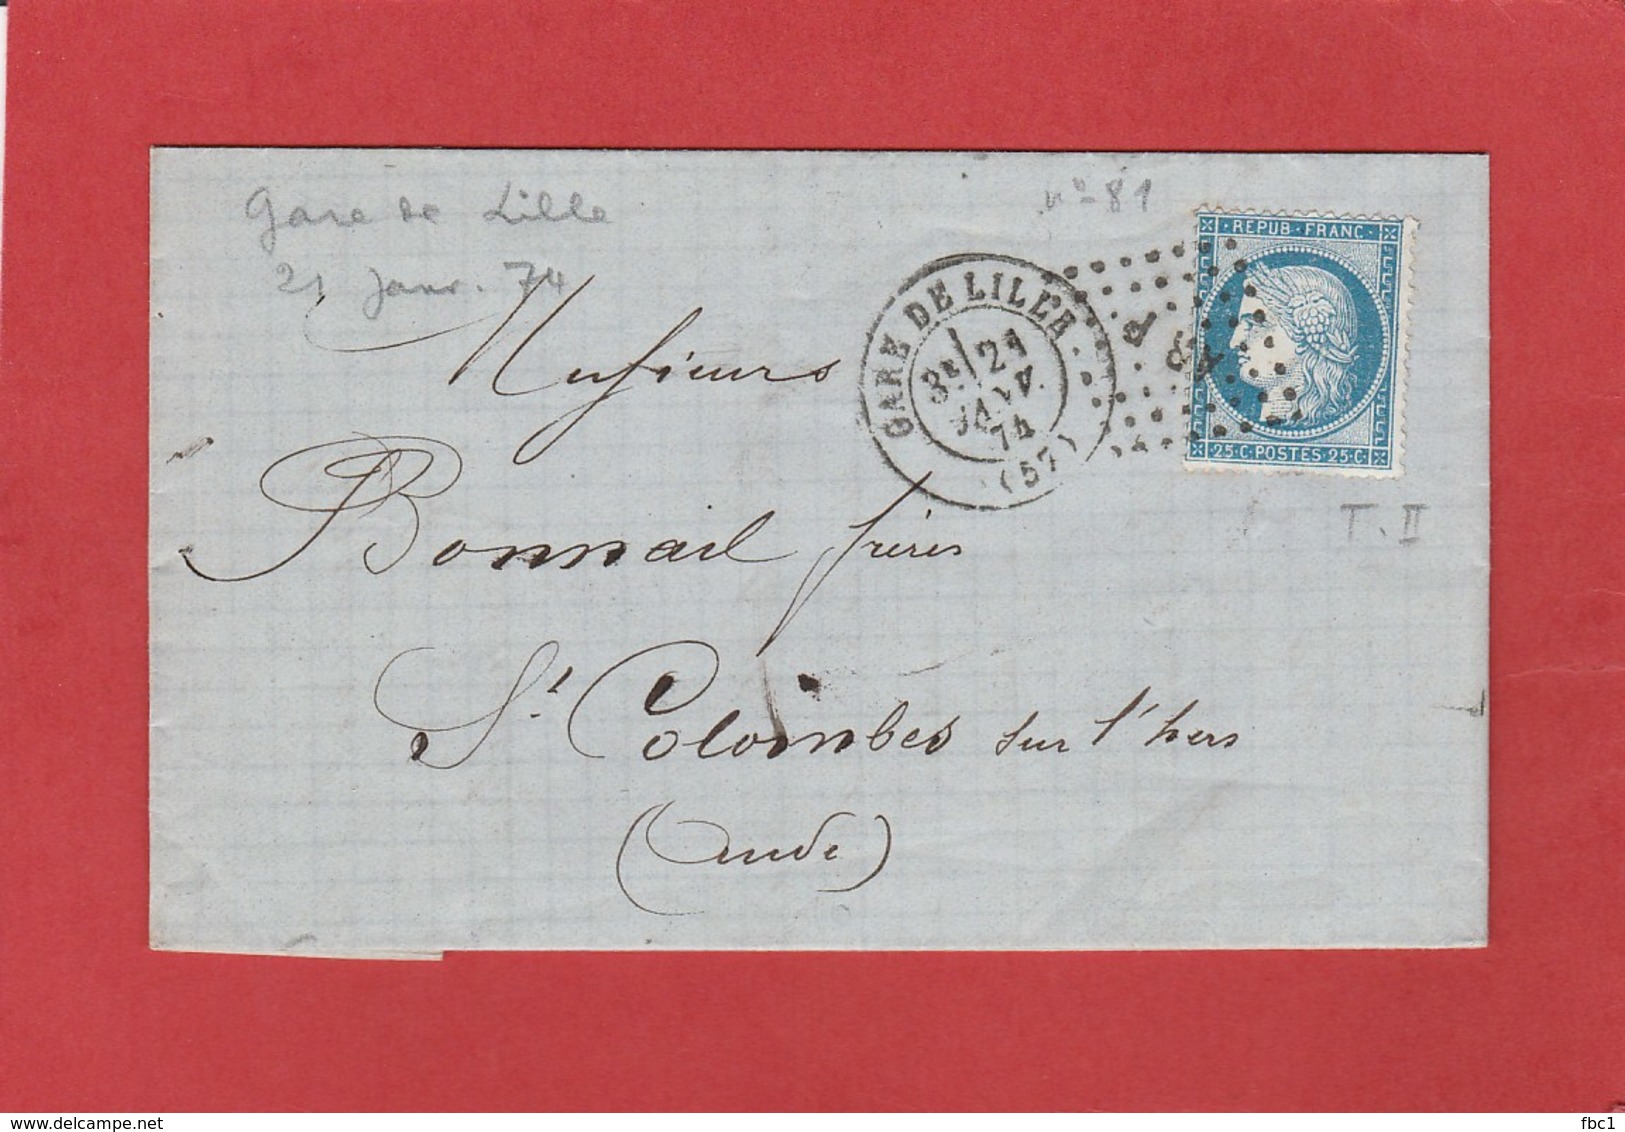 Gare de Lille
21 Janv. 74
n° 81
REPUB · FRANC
25 · C · POSTES · 25 · C
GARE DE LILLE
3E/ 21
JANV.
74
(57)
T. II
Messieurs
Bonnail frères
St. Colombes sur l'hers
(Aude)
delcampe.net
fbc1